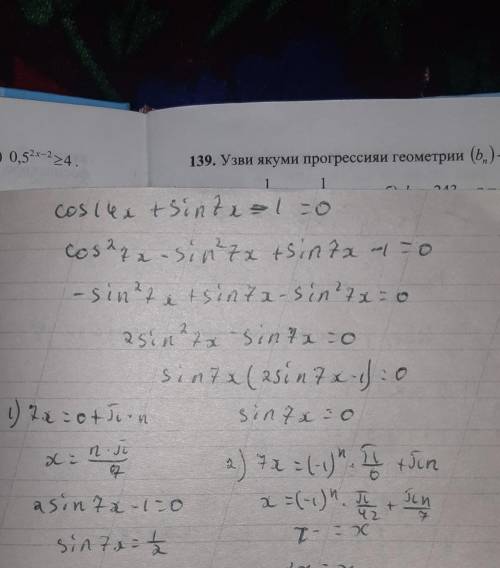 ) 0,5^{2x-2}≥4.
139. Узви якуми прогрессияи геометрии (bₙ)-
1 1
cos14x + sin7x - 1 = 0
cos²7x - sin²7x + sin7x - 1 = 0
-sin²7x + sin7x - sin²7x = 0
2sin²7x - sin7x = 0
sin7x(2sin7x-1) = 0
1) 7x = 0 + π·n sin7x = 0
x = n·π/7 2) 7x = (-1)ⁿ · π/6 + πn
2sin7x - 1 = 0 x = (-1)ⁿ · π/42 + πn/7
sin7x = 1/2 = x